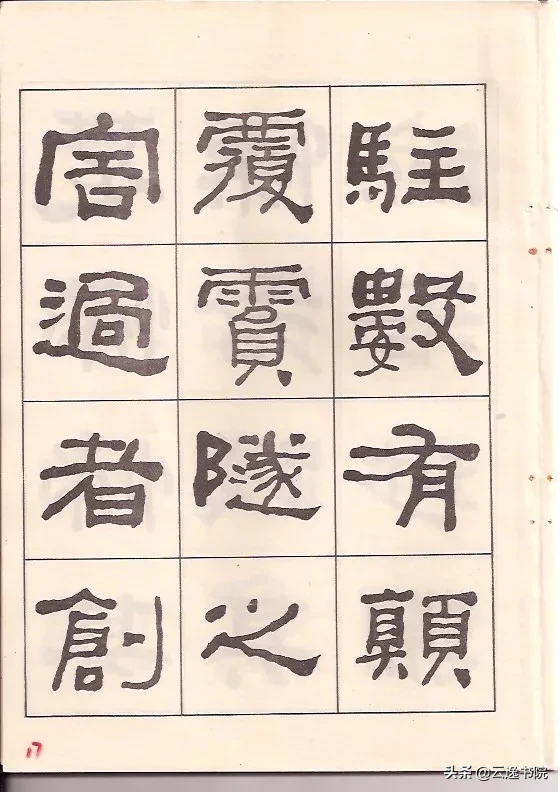 駐數有顛
覆霣隧之
害過者創
17
头条 @云逸书院